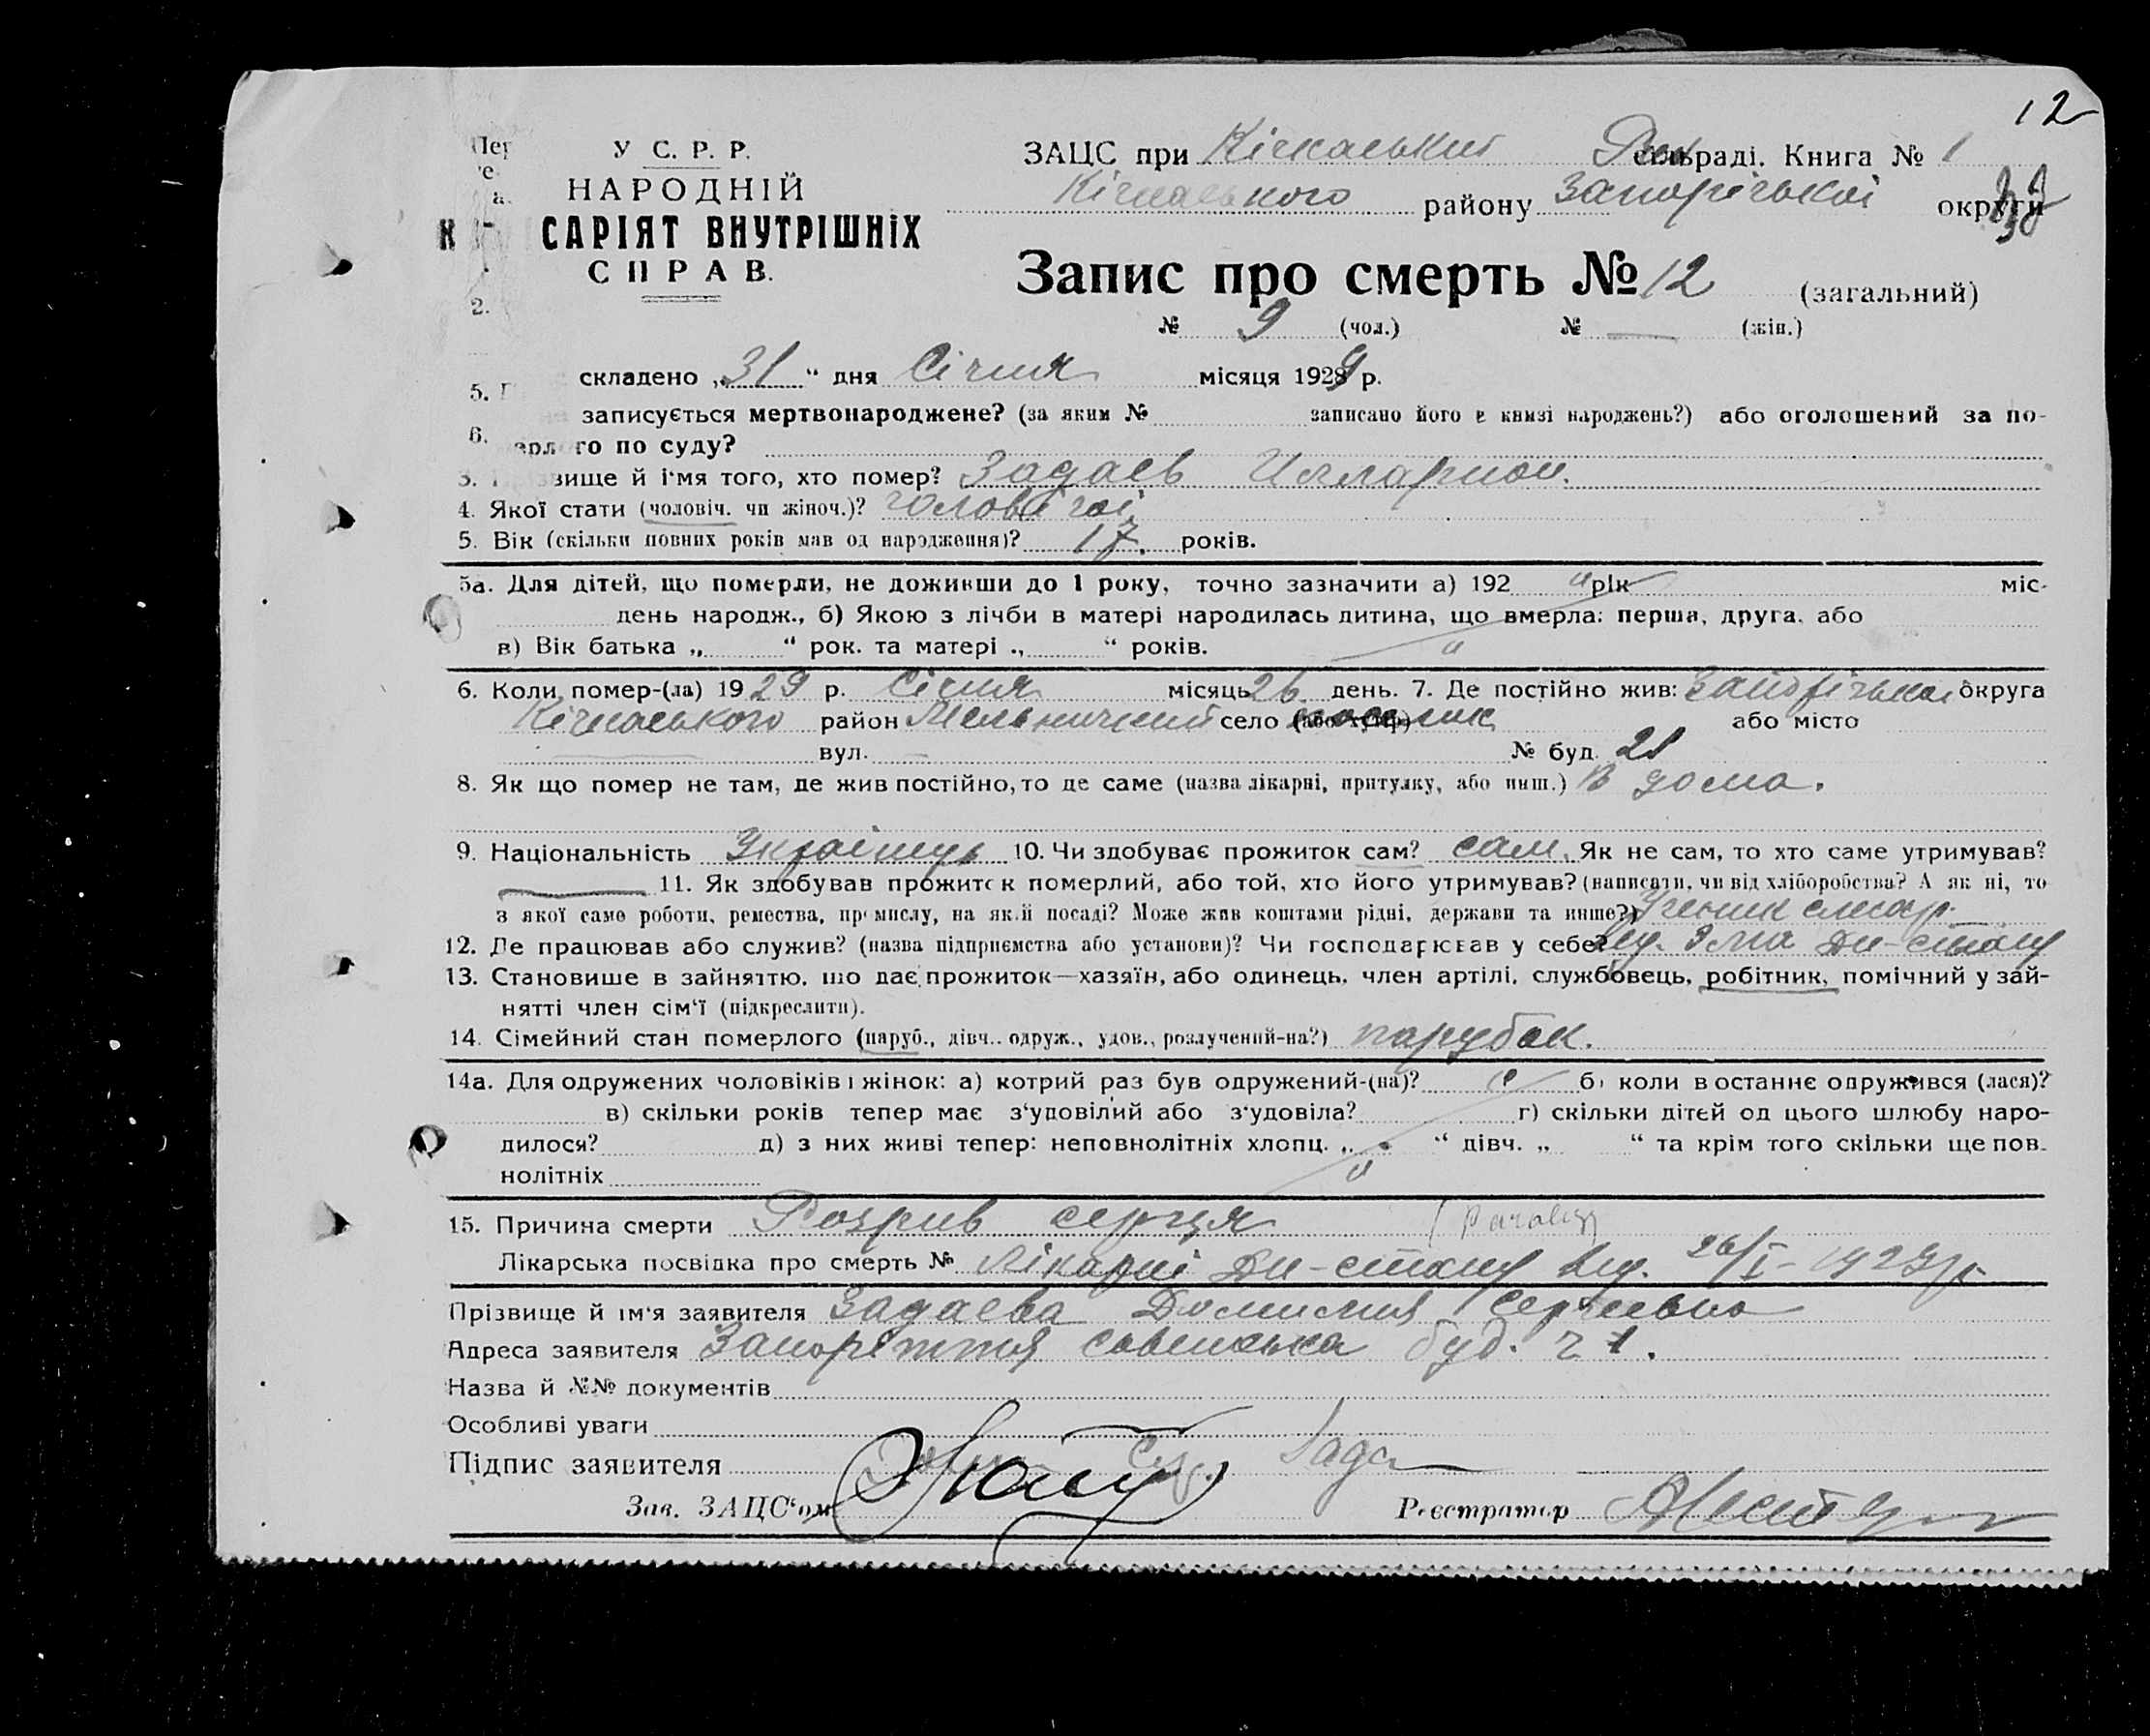 12
У С. Р. Р.
НАРОДНІЙ
САРІЯТ ВНУТРІШНІХ
СПРАВ.
ЗАЦС при Кічкаський Рай сільраді. Книга № 1
Кічкаського району Запорізької округи
Запис про смерть № 12 (загальний)
№ 9 (чол.) № — (жін.)
складено „31“ дня Січня місяця 1929 р.
записується мертвонароджене? (за яким № записано його в книзі народжень?) або оголошений за по-
го по суду?
3. вище й і'мя того, хто помер? Задаєв Илларион.
4. Якої стати (чоловіч. чи жіноч.)? чоловічої
5. Вік (скільки повних років мав од народження)? 17. років.
5а. Для дітей, що померли, не доживши до 1 року, точно зазначити а) 192 рік міс-
день народж., б) Якою з лічби в матері народилась дитина, що вмерла: перша, друга, або
в) Вік батька „ “ рок. та матері „ “ років.
6. Коли помер-(ла) 1929 р. Січня місяць 26 день. 7. Де постійно жив: Запорізька округа
Кічкаського район село або місто
вул. № буд. 21
8. Як що помер не там, де жив постійно, то де саме (назва лікарні, притулку, або инш.) В дома.
9. Національність Українець 10. Чи здобуває прожиток сам? сам. Як не сам, то хто саме утримував?
11. Як здобував прожиток померлий, або той, хто його утримував? (написати, чи від хліборобства? А як ні, то
з якої саме роботи, ремества, промислу, на якій посаді? Може жив коштами рідні, держави та инше?) Ученик слюсар
12. Де працював або служив? (назва підприємства або установи)? Чи господарював у себе?
13. Становище в зайняттю, що дає прожиток—хазяїн, або одинець, член артілі, службовець, робітник, помічний у зай-
нятті член сім'ї (підкреслити).
14. Сімейний стан померлого (паруб., дівч.. одруж., удов., розлучений-на?) парубок.
14а. Для одружених чоловіків і жінок: а) котрий раз був одружений-(на)? б) коли в останнє одружився (лася)?
в) скільки років тепер має з'удовілий або з'удовіла? г) скільки дітей од цього шлюбу наро-
дилося? д) з них живі тепер: неповнолітніх хлопц. „ “ дівч. „ “ та крім того скільки ще пов-
нолітніх
15. Причина смерти Розрив серця
Лікарська посвідка про смерть № Лікарні Дн-стану від. 26/I-1929 р.
Прізвище й ім'я заявителя Задаева Домникия Сергеевна
Адреса заявителя Запоріжжя буд. 21.
Назва й №№ документів
Особливі уваги
Підпис заявителя
Зав. ЗАЦС'ом Реєстратор